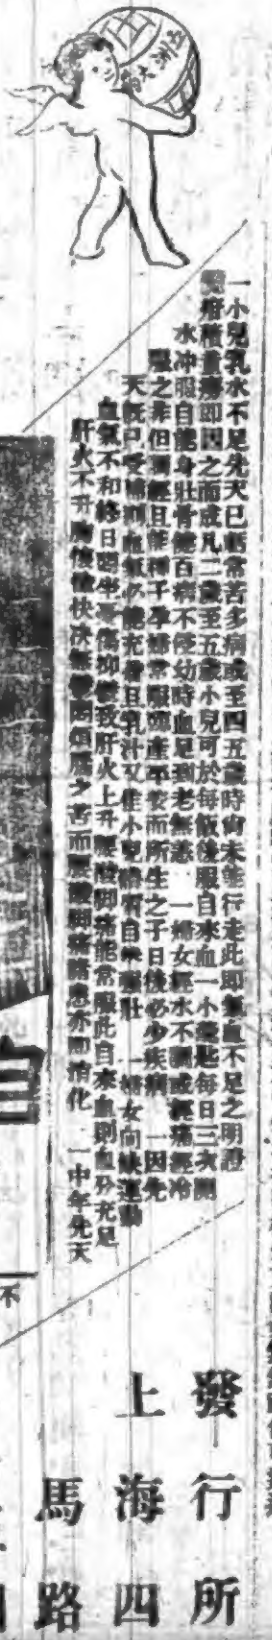 五洲大藥
一小兒乳水不足先天已虧常苦多病或至四五歲時尙未能行走此即氣血不足之明證
癆瘠積童癆即因之而成凡二歲至五歲小兒可於每飯後服自來血一小藥匙每日三次開
水冲服自能身壯骨健百病不侵幼時血足到老無恙 一婦女經水不調或經痛經冷
服之非但調經且能種子孕婦常服臨產平安而所生之子日後必少疾病 一因先
天既已受補則血氣必能充眥且乳汁又佳小兒體質自然强壯 一婦女向缺運動
血氣不和終日悶坐憂傷抑鬱致肝火上升腰酸脚痛能常服此自來血則血分充足
肝火不升胸懷愉快決無鬱悶煩腦之苦而腰酸脚痛諸患亦即消化 一中年先天
發行所
上海四
馬路
自
不